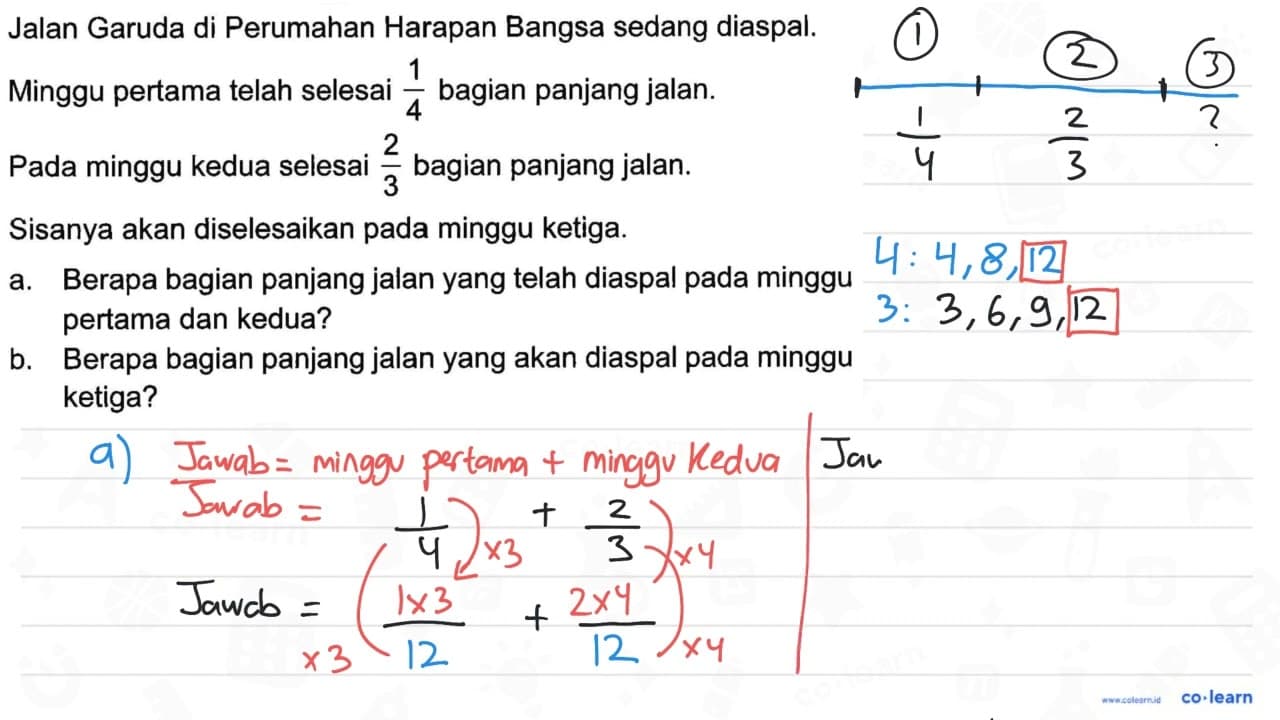 Jalan Garuda di Perumahan Harapan Bangsa sedang diaspal.
Minggu pertama telah selesai 1/4 bagian panjang jalan.
Pada minggu kedua selesai 2/3 bagian panjang jalan.
Sisanya akan diselesaikan pada minggu ketiga.
a. Berapa bagian panjang jalan yang telah diaspal pada minggu
pertama dan kedua?
b. Berapa bagian panjang jalan yang akan diaspal pada minggu
ketiga?
1 2 3
1/4 2/3 ?
4: 4, 8, 12
3: 3, 6, 9, 12
a) Jawab = minggu pertama + minggu kedua
Jawab = 1/4 + 2/3
x3 x4
Jawab = 1x3/12 + 2x4/12
x3 x4
Jaw
www.colearn.id co·learn